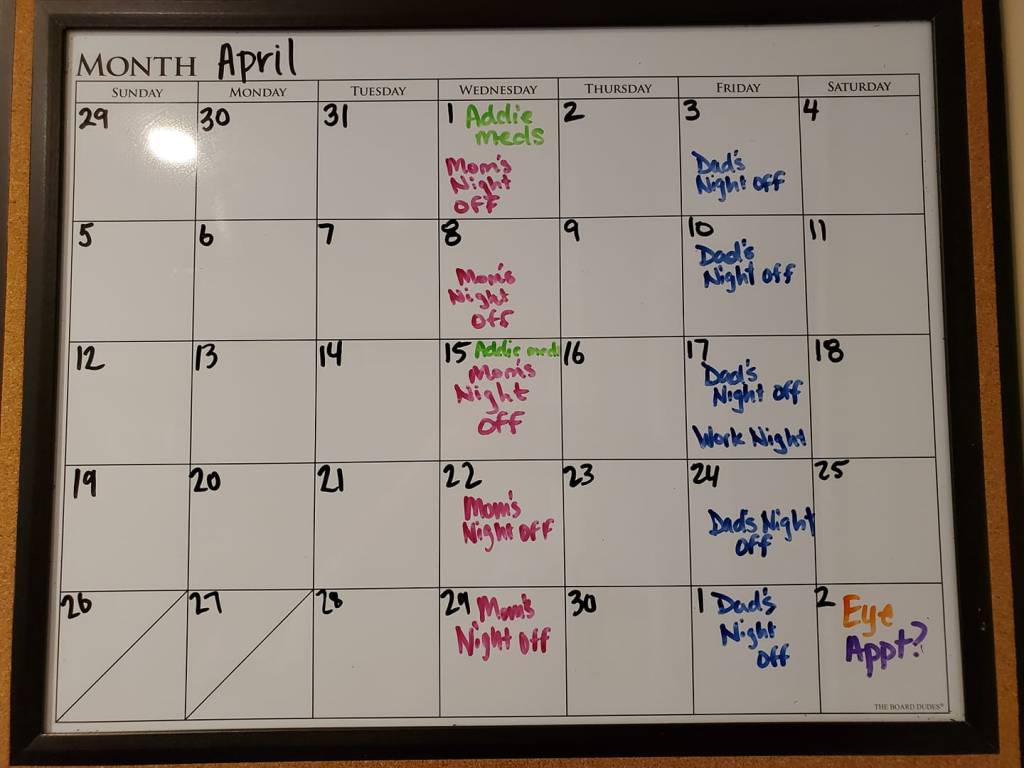 MONTH April
SUNDAY MONDAY TUESDAY WEDNESDAY THURSDAY FRIDAY SATURDAY
29
30
31
1 Addie
meds
Mom's
Night
off
2
3
Dad's
Night off
4
5
6
7
8
Mom's
Night
off
9
10
Dad's
Night off
11
12
13
14
15 Addie meds
Mom's
Night
off
16
17
Dad's
Night off
Work Night
18
19
20
21
22
Mom's
Night off
23
24
Dad's Night
off
25
26
27
28
29 Mom's
Night off
30
1 Dad's
Night
off
2 Eye
Appt?
THE BOARD DUDES®